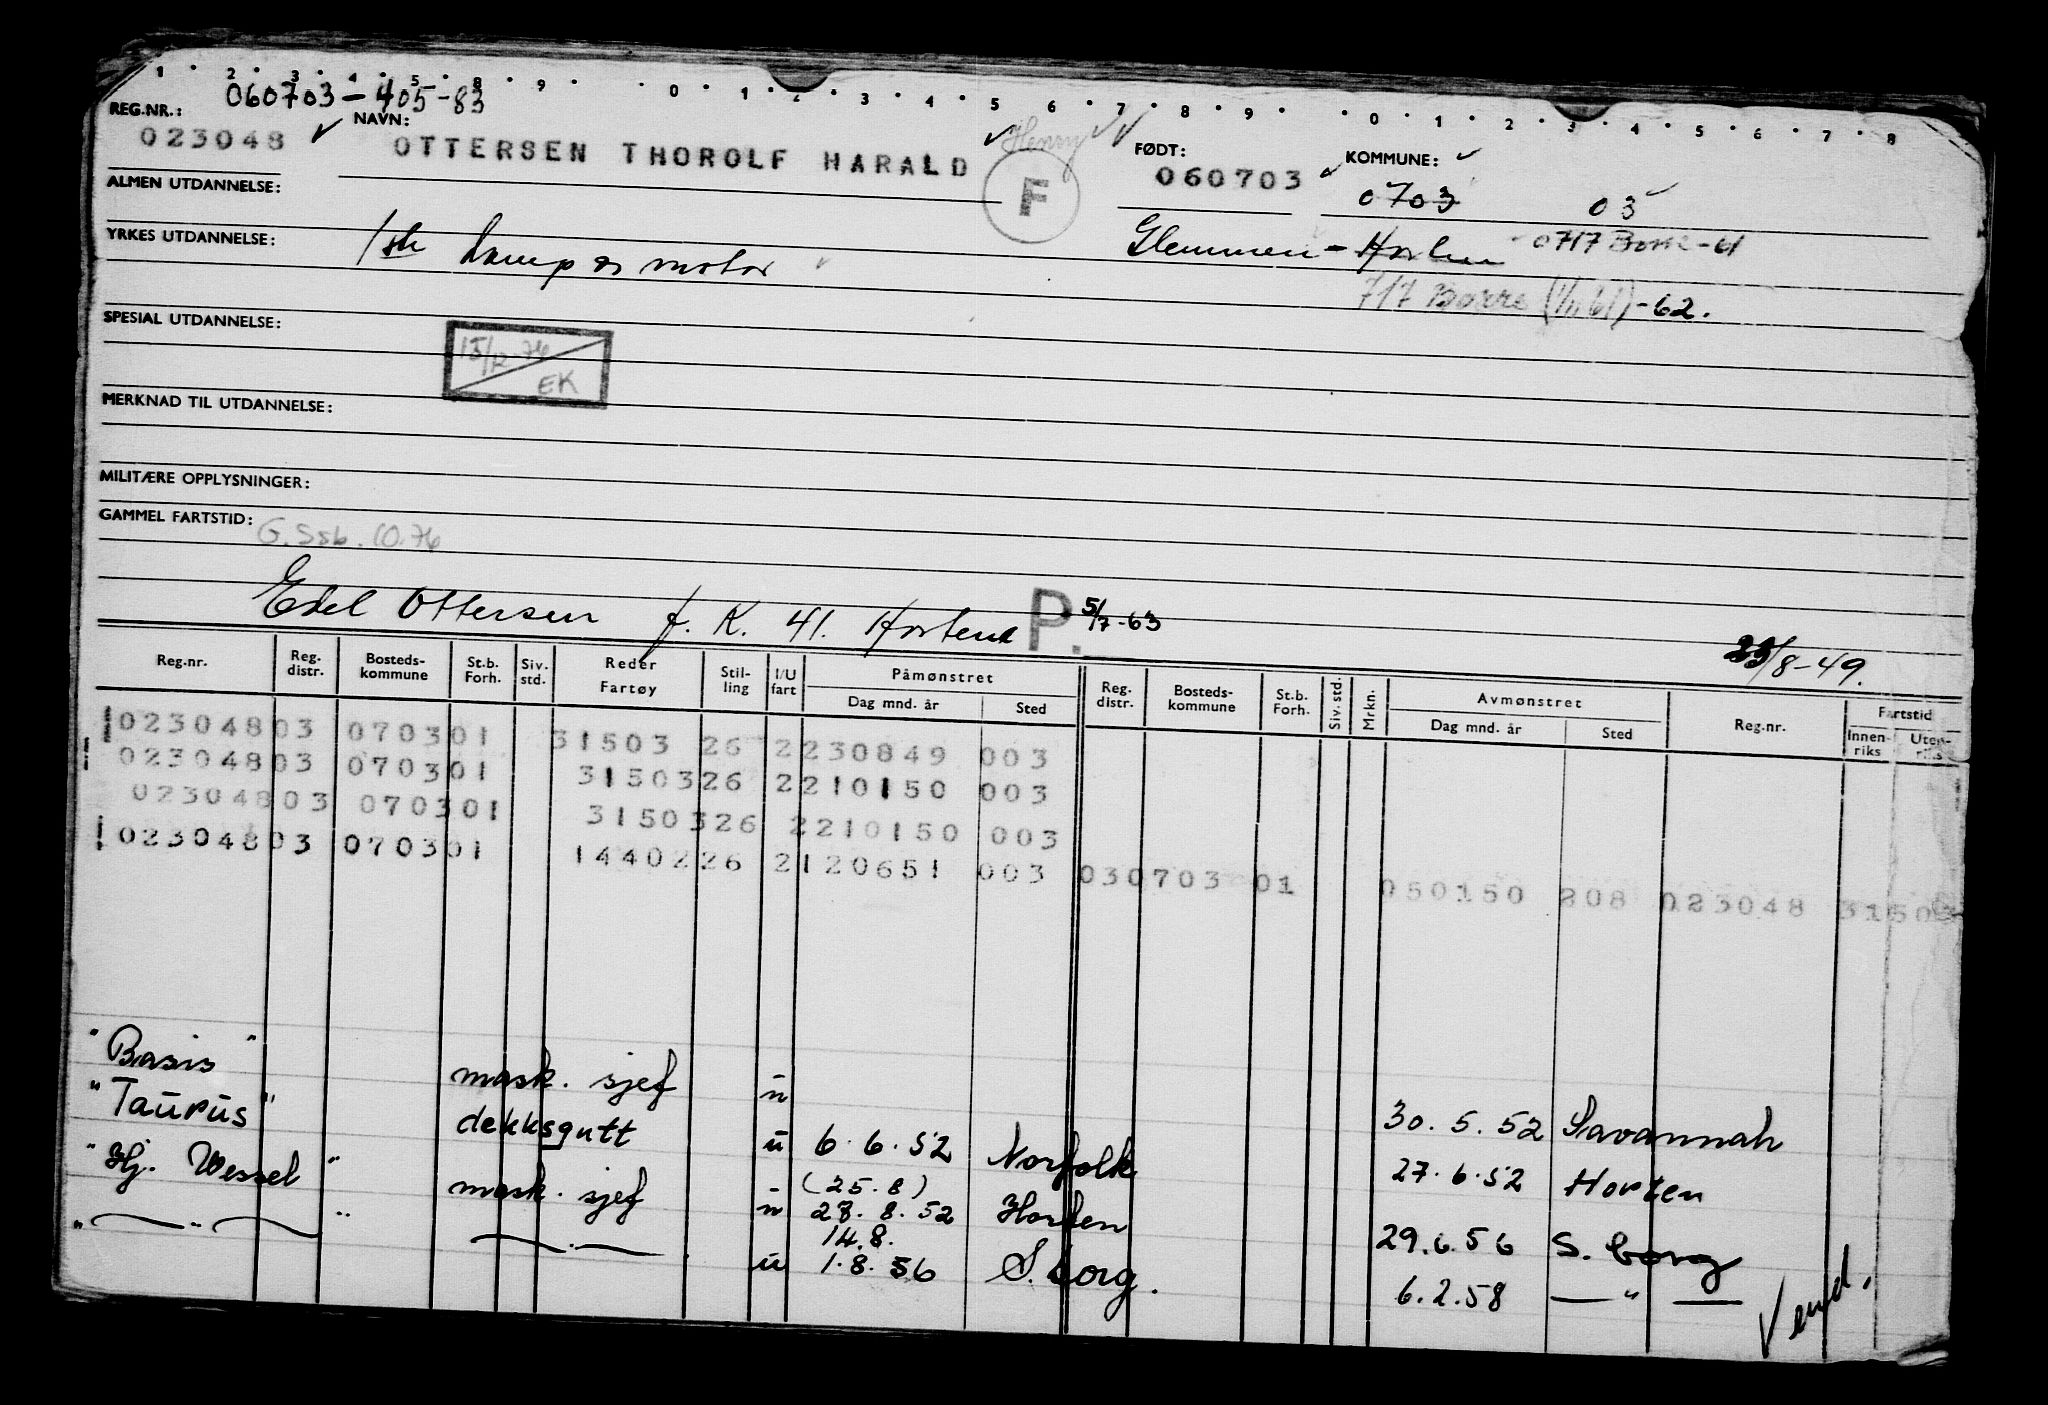 1 2 3 4 5 8 9 0 1 2 3 4 5 6 7 8 9 0 1 2 3 4 5 6 7 8
REG.NR.: 060703-405-83
NAVN: Henry FØDT: KOMMUNE:
023048 OTTERSEN THOROLF HARALD F 060703 0703 03
ALMEN UTDANNELSE:
Glemmen - Horten 0717 Borre-61
YRKES UTDANNELSE: 1ste damp og motor
717 Borre (1/11 61) -62.
SPESIAL UTDANNELSE:
15/12-76
EK
MERKNAD TIL UTDANNELSE:
MILITÆRE OPPLYSNINGER:
GAMMEL FARTSTID: G.Ssb. 10.76
Edel Ottersen f. K. 41. Horten P. 5/7-63
23/8-49.
Reg.nr. Reg. distr. Bosteds-kommune St.b. Forh. Siv. std. Reder Fartøy Stil-ling I/U fart Påmønstret Dag mnd. år Sted Reg. distr. Bosteds-kommune St.b. Forh. Siv. std. Mrkn. Avmønstret Dag mnd. år Sted Reg.nr. Fartstid Innen-riks Uten-riks
023048 03 0703 01 31503 26 2 230849 003
023048 03 0703 01 31503 26 2 210150 003
023048 03 0703 01 31503 26 2 210150 003
023048 03 0703 01 14402 26 2 120651 003 03 0703 01 050150 208 023048 31503
"Basis" mask. sjef u 30.5.52 Savannah
"Taurus" dekksgutt u 6.6.52 Norfolk 27.6.52 Horten
(25.8)
"Hj. Wessel" mask. sjef u 28.8.52 Horten 29.6.56 S. borg
14.8.
" — " — " — . — u 1.8.56 S. borg. 6.2.58 — " —
Vend.